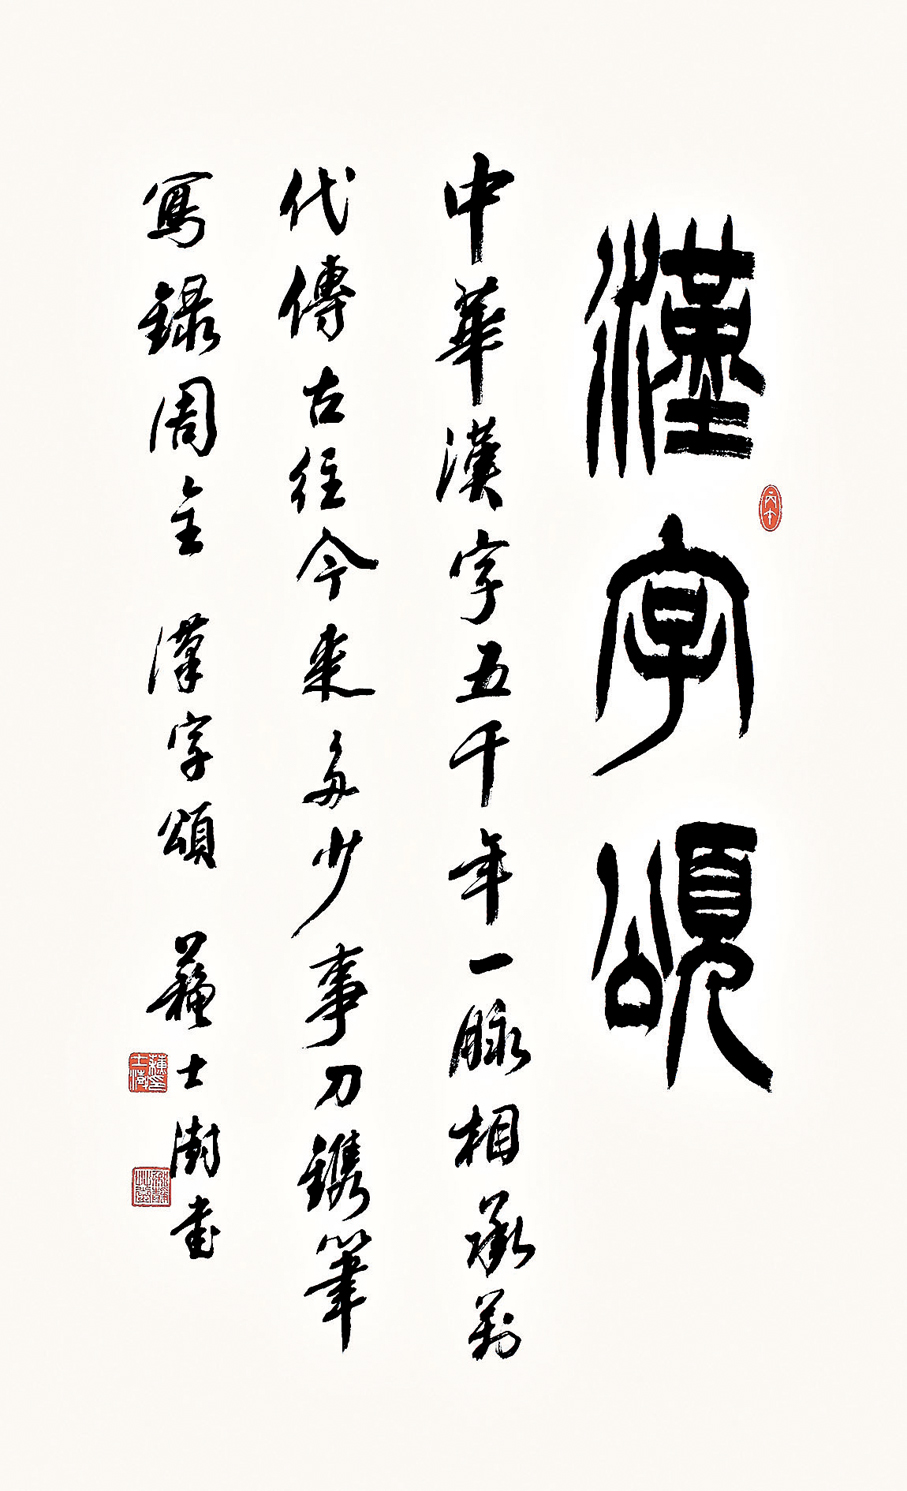 漢字頌
中華漢字五千年一脉相承萬
代傳古往今來多少事刀鐫筆
寫録周全 漢字頌 蘇士澍書